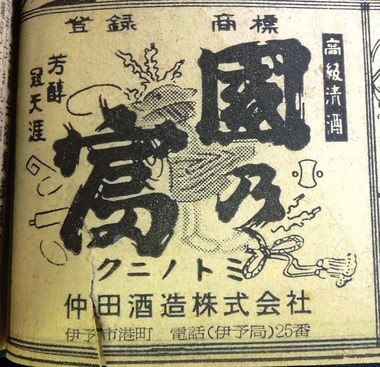 登録 商標
高級清酒
國乃
富
芳醇
冠天涯
クニノトミ
仲田酒造株式会社
伊予市港町 電話(伊予局)25番